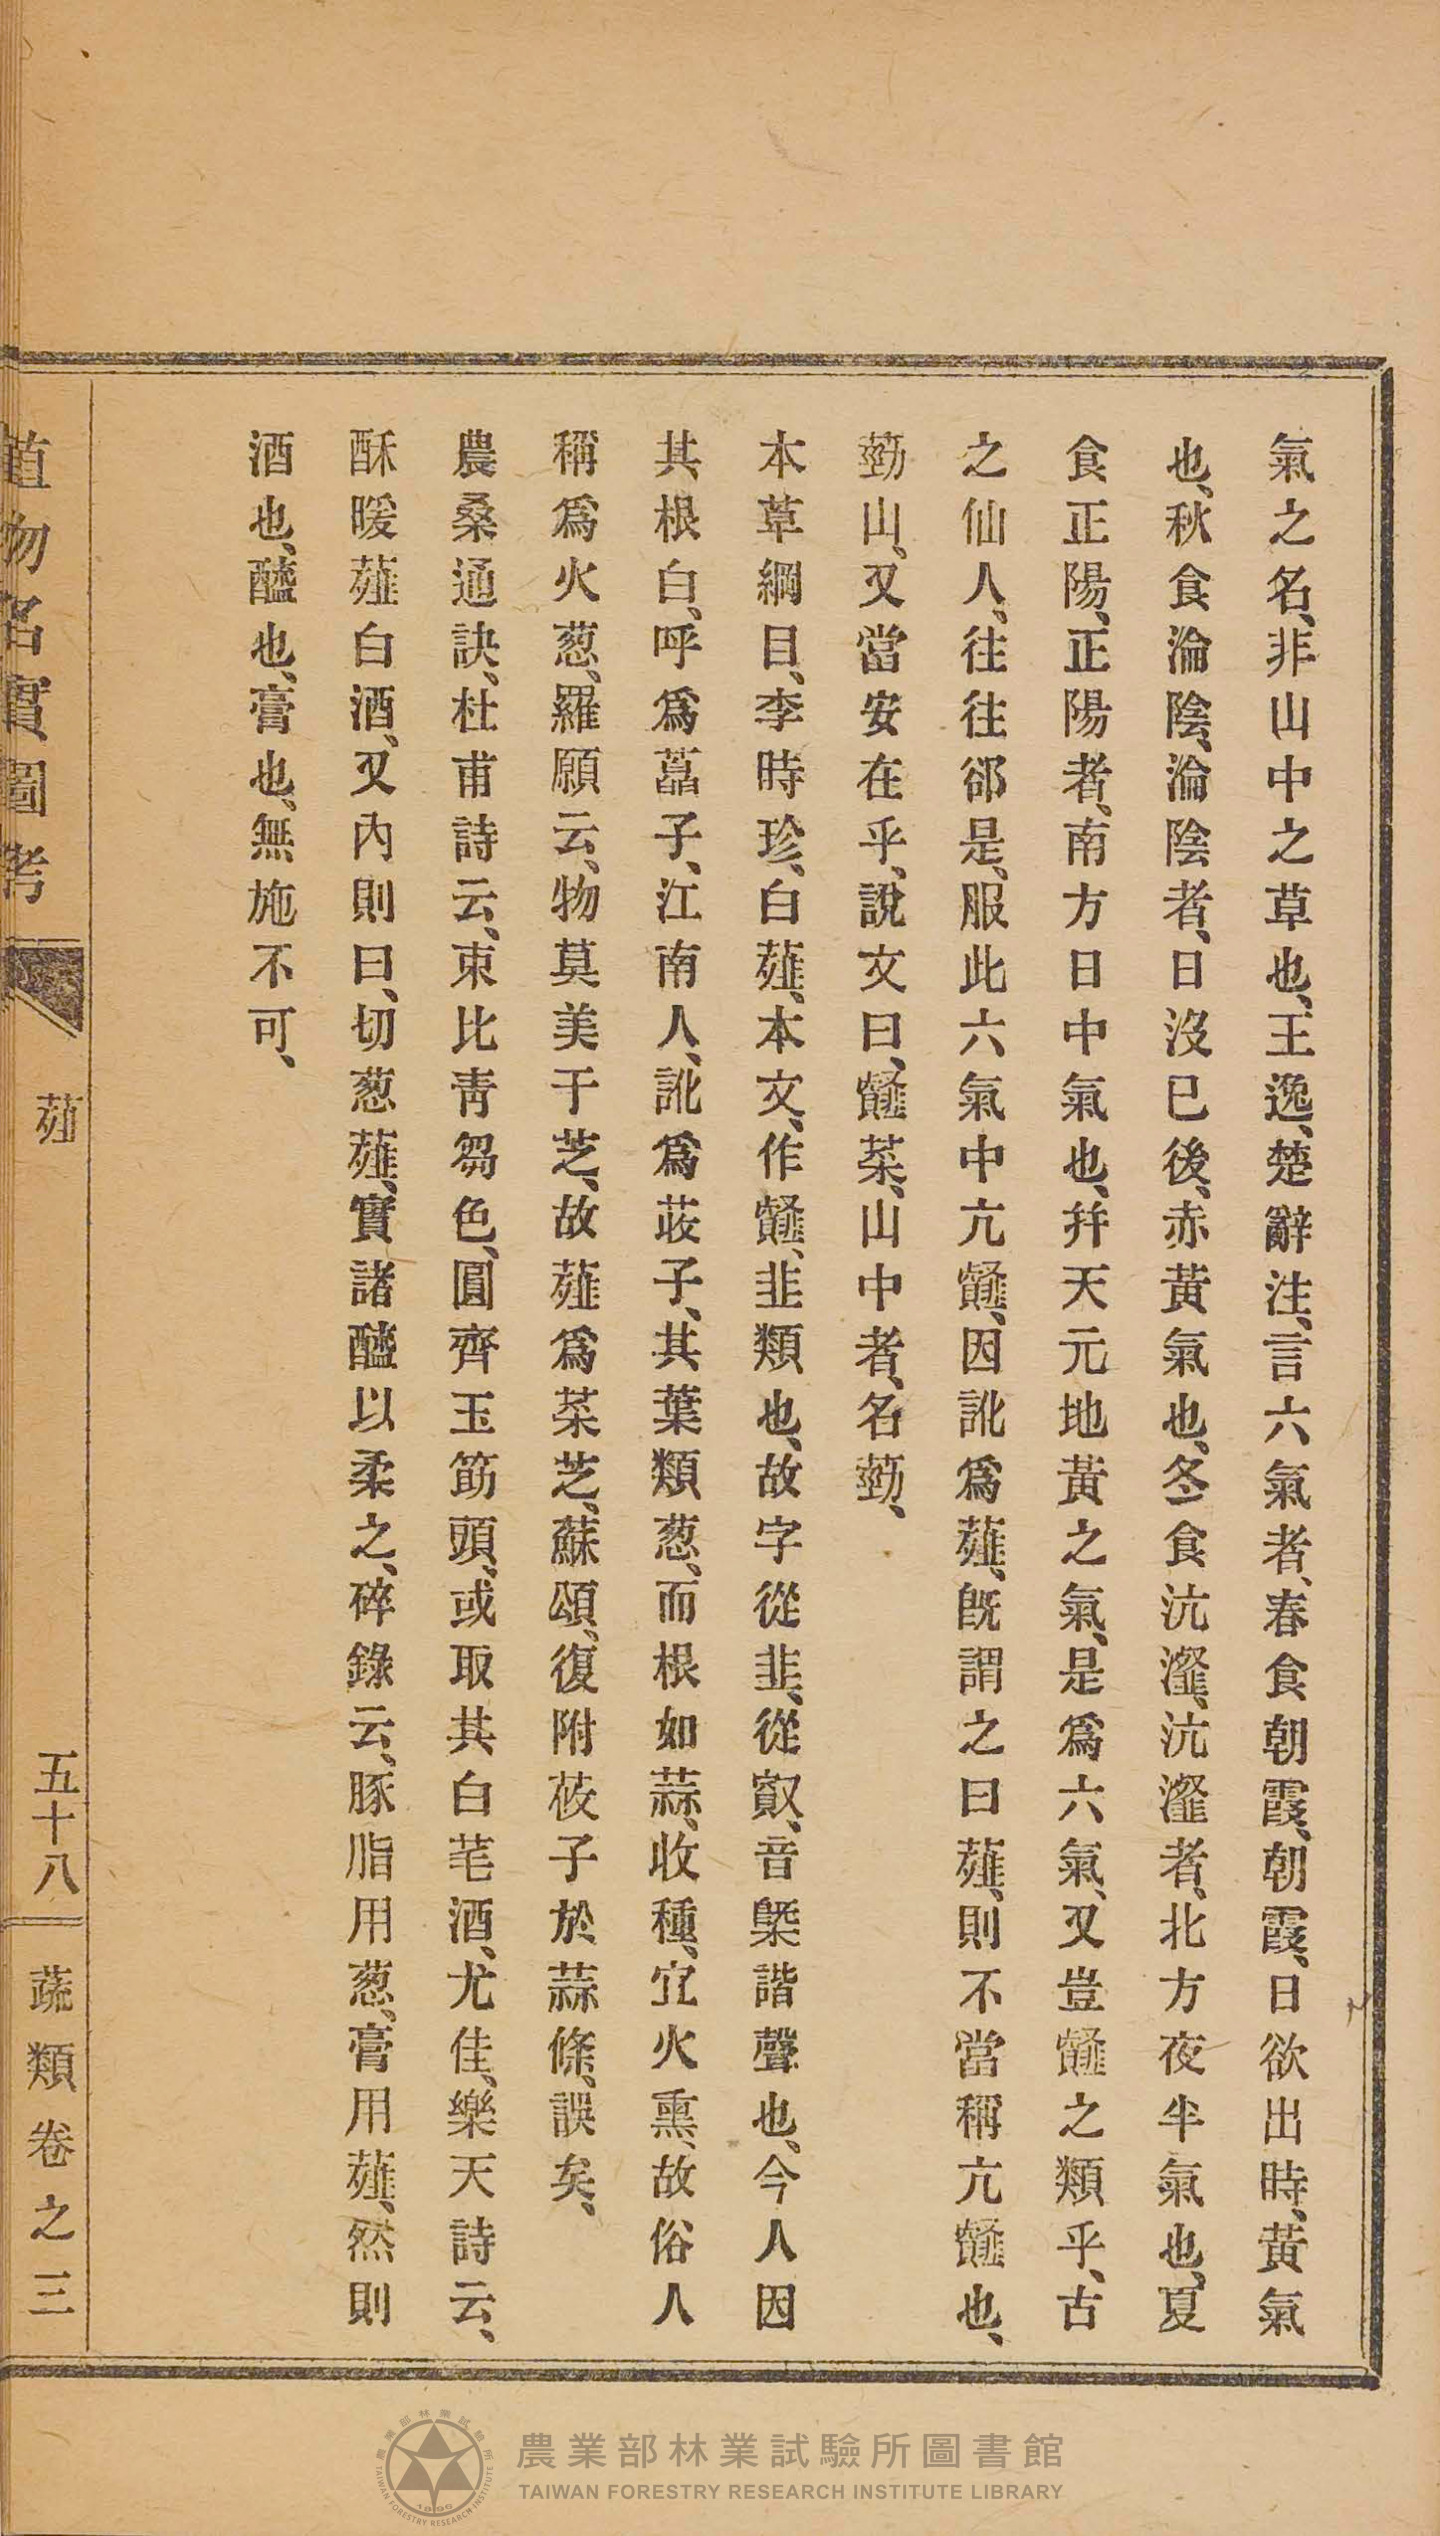 氣之名、非山中之草也、王逸、楚辭注、言六氣者、春食朝霞、朝霞、日欲出時、黃氣
也、秋食淪陰、淪陰者、日沒已後、赤黃氣也、冬食沆瀣、沆瀣者、北方夜半氣也、夏
食正陽、正陽者、南方日中氣也、幷天元地黃之氣、是爲六氣、又豈䪥之類乎、古
之仙人、往往卻是、服此六氣中亢䪥、因訛爲薤、旣謂之曰薤、則不當稱亢䪥也、
葝山、又當安在乎、說文曰、䪥菜、山中者、名葝、
本草綱目、李時珍、白薤、本文、作䪥、韭類也、故字從韭、從㕡、音槩諧聲也、今人因
其根白、呼爲藠子、江南人、訛爲莜子、其葉類葱、而根如蒜、收種、宜火熏、故俗人
稱爲火葱、羅願云、物莫美于芝、故薤爲菜芝、蘇頌、復附莜子於蒜條、誤矣、
農桑通訣、杜甫詩云、束比靑芻色、圓齊玉筯頭、或取其白芼酒、尤佳、樂天詩云、
酥暖薤白酒、又內則曰、切葱薤、實諸醯以柔之、碎錄云、豚脂用葱、膏用薤、然則
酒也、醯也、膏也、無施不可、
植物名實圖考 薤 五十八 蔬類卷之三
農業部林業試驗所圖書館
TAIWAN FORESTRY RESEARCH INSTITUTE LIBRARY
農業部林業試驗所
TAIWAN FORESTRY RESEARCH INSTITUTE
1895